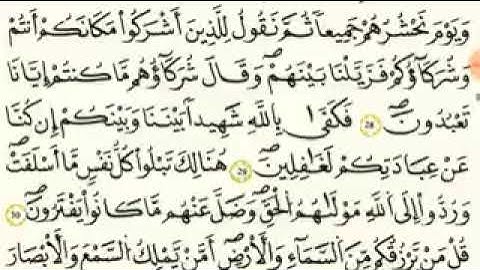 وَيَوْمَ نَحْشُرُهُمْ جَمِيعًا ثُمَّ نَقُولُ لِلَّذِينَ أَشْرَكُوا۟ مَكَانَكُمْ أَنتُمْ
وَشُرَكَآؤُكُمْ فَزَيَّلْنَا بَيْنَهُمْ وَقَالَ شُرَكَآؤُهُم مَّا كُنتُمْ إِيَّانَا
تَعْبُدُونَ 28 فَكَفَىٰ بِٱللَّهِ شَهِيدًۢا بَيْنَنَا وَبَيْنَكُمْ إِن كُنَّا
عَنْ عِبَادَتِكُمْ لَغَٰفِلِينَ 29 هُنَالِكَ تَبْلُوا۟ كُلُّ نَفْسٍ مَّآ أَسْلَفَتْ
وَرُدُّوٓا۟ إِلَى ٱللَّهِ مَوْلَىٰهُمُ ٱلْحَقِّ وَضَلَّ عَنْهُم مَّا كَانُوا۟ يَفْتَرُونَ 30
قُلْ مَن يَرْزُقُكُم مِّنَ ٱلسَّمَآءِ وَٱلْأَرْضِ أَمَّن يَمْلِكُ ٱلسَّمْعَ وَٱلْأَبْصَٰرَ